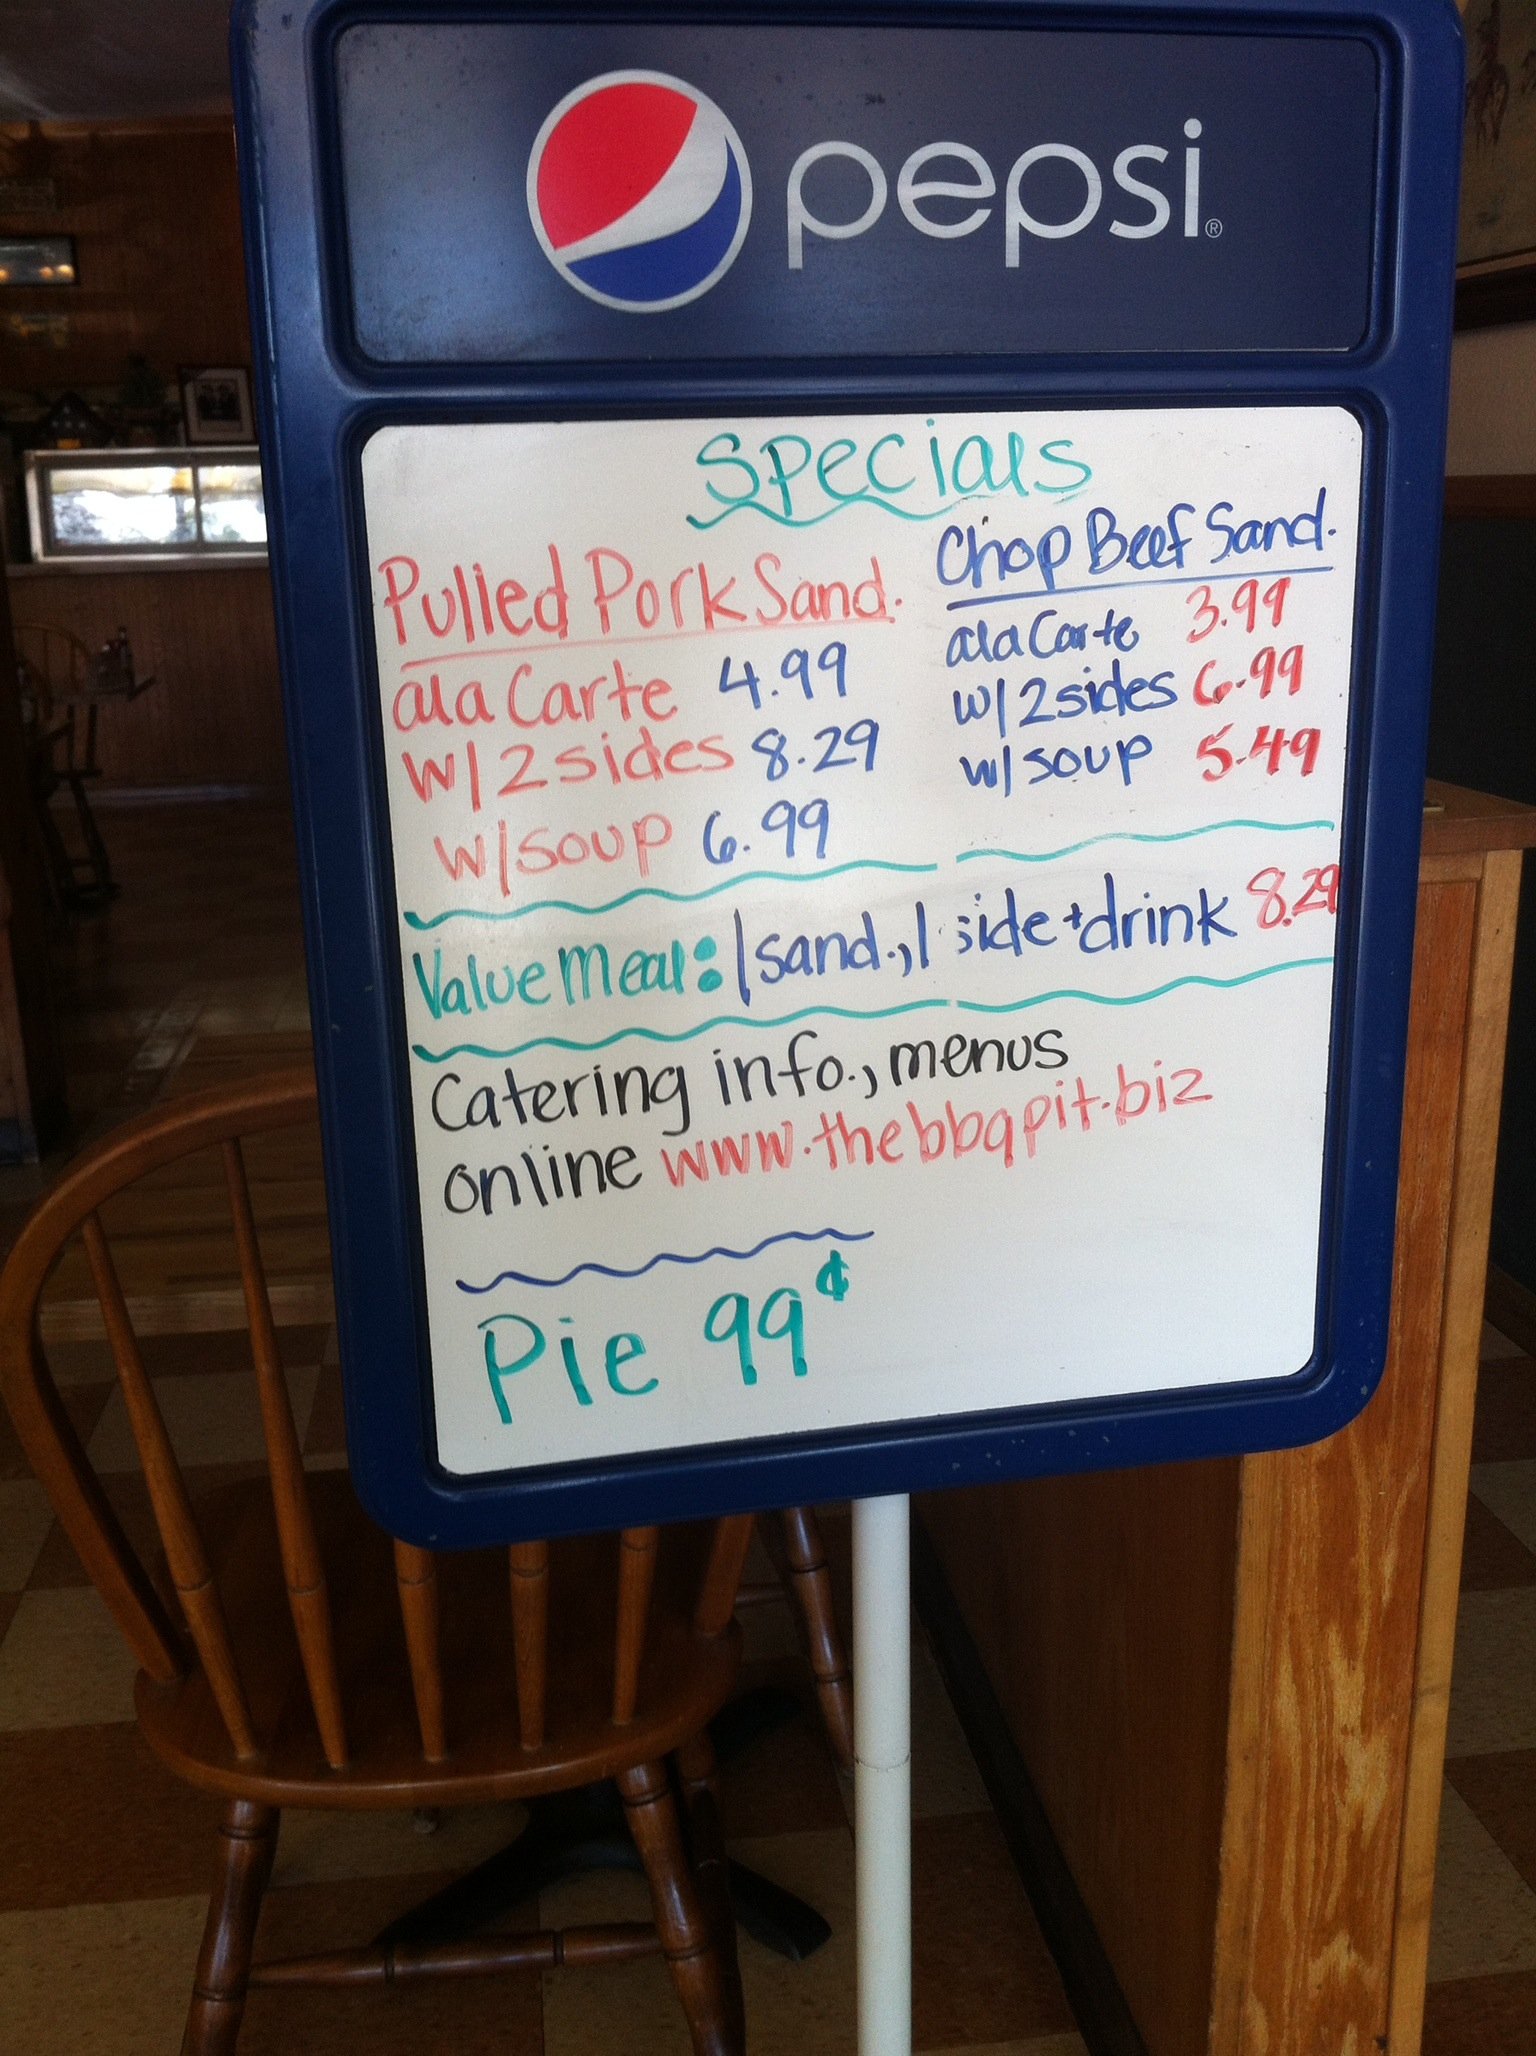 pepsi®
Specials
Pulled Pork Sand.
ala Carte 4.99
w/ 2 sides 8.29
w/ soup 6.99
Chop Beef Sand.
ala Carte 3.99
w/ 2 sides 6.99
w/ soup 5.49
Value Meal: 1 sand., 1 side + drink 8.29
Catering info., menus
online www.thebbqpit.biz
Pie 99¢